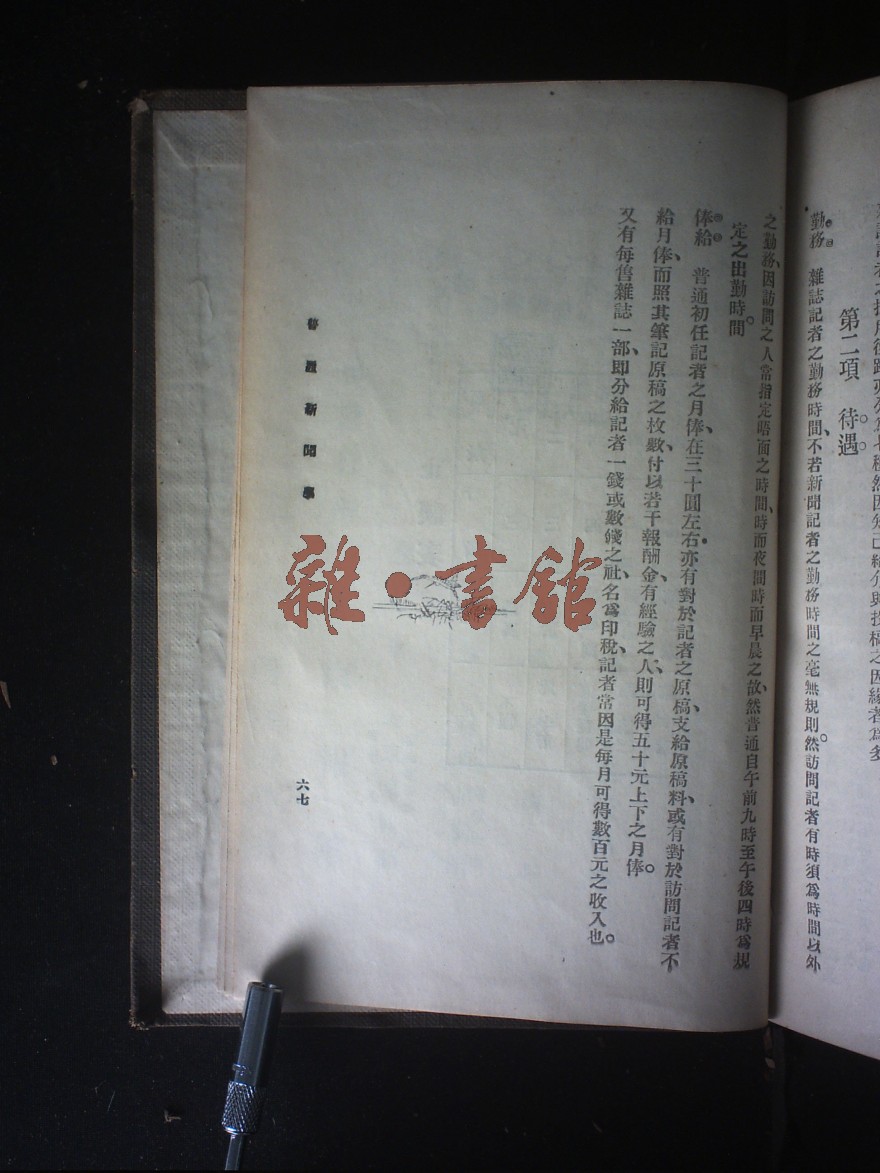 第二項　待遇。
勤務　雜誌記者之勤務時間、不若新聞記者之勤務時間之毫無規則。然訪問記者有時須爲時間以外
之勤務、因訪問之人常指定晤面之時間、時而夜間時而早晨之故、然普通自午前九時至午後四時爲規
定之出勤時間。
俸給　普通初任記者之月俸、在三十圓左右、亦有對於記者之原稿、支給原稿料、或有對於訪問記者不
給月俸、而照其筆記原稿之枚數、付以若干報酬金、有經驗之人、則可得五十元上下之月俸。
又有每售雜誌一部、即分給記者一錢或數錢之社、名爲印稅、記者常因是每月可得數百元之收入也。
新聞事
六七
雜·書館